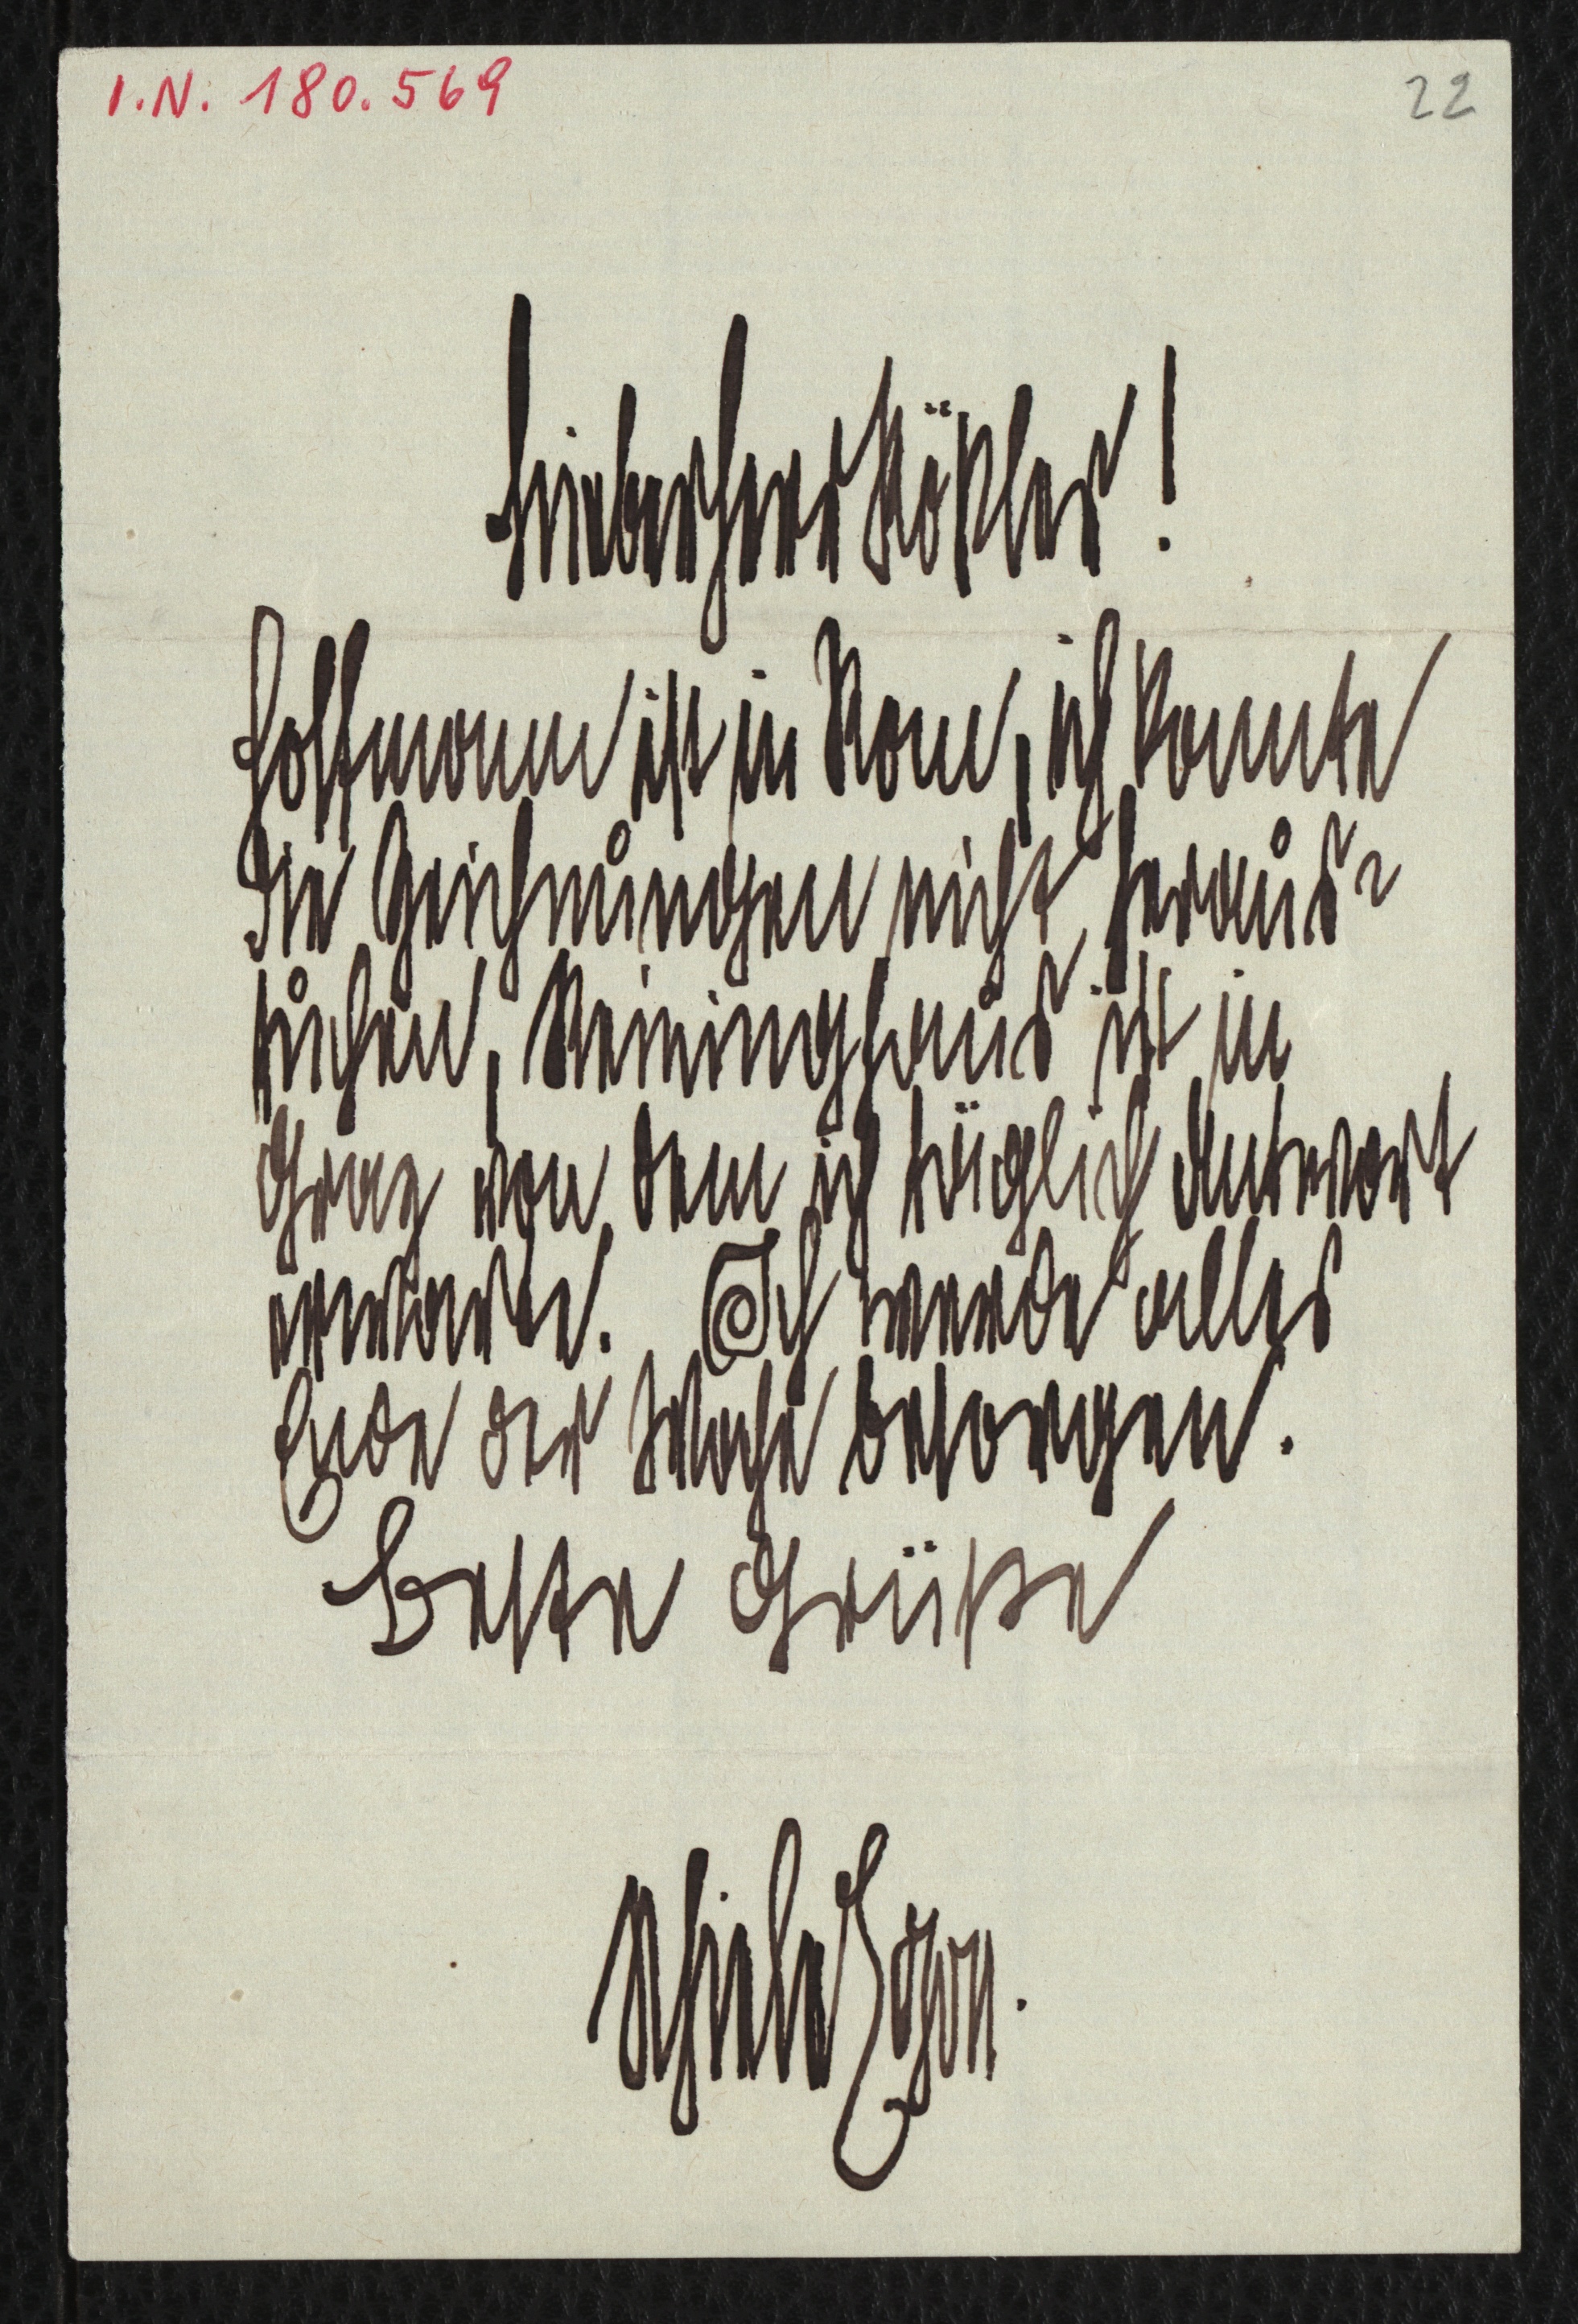 I.N. 180.569
22
Lieber Herr Rößler!
Hoffmann ist in Rom, ich konnte
die Zeichnungen nicht heraus-
suchen, Reininghaus ist in
Graz von dem ich täglich Antwort
erwarte. Ich werde alles
Ende der Woche besorgen.
Beste Grüße
Schiele Egon.